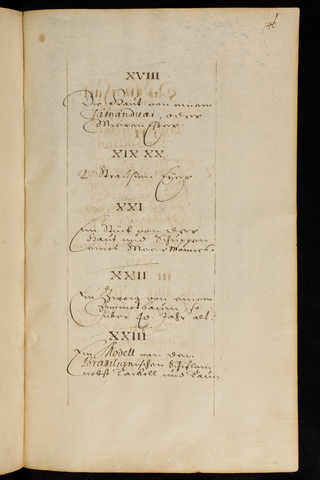 146
XVIII
Die Haut von einem
Tamanduai, oder
XIX XX
2 Straussen Eyer
XXI
Ein Stück von der
Haut und Schuppen
eines Meer Mannes.
XXII
Ein Zweig von einem
Zimmetbaum so
über 40 Jahr alt.
XXIII
Ein Modell von den
Brasilianischen Schiflein
nebst Tackell und Tauw